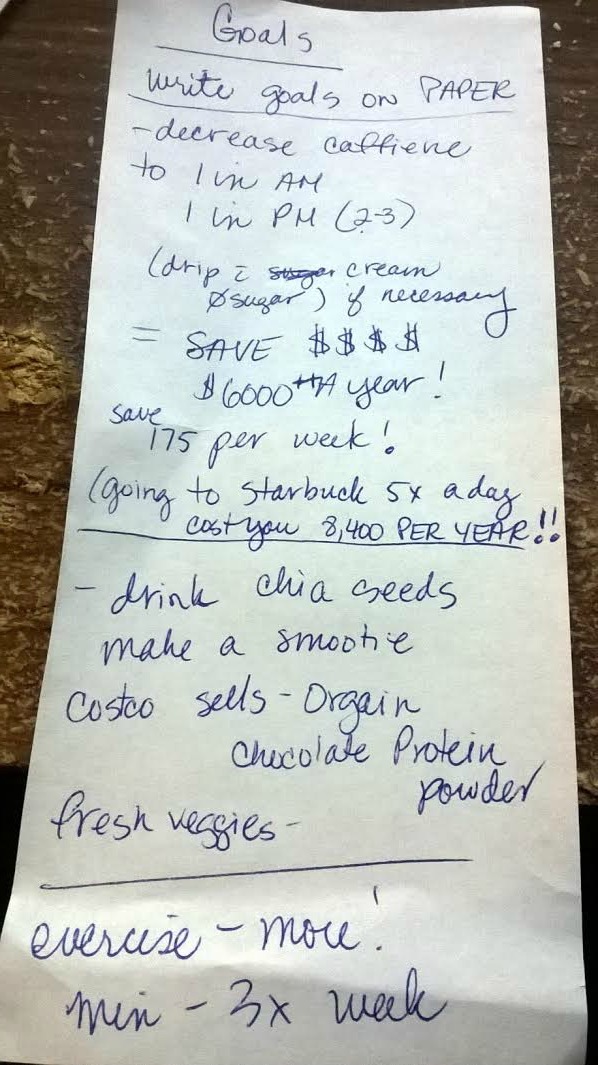 Goals
write goals on PAPER
- decrease caffiene
to 1 in AM
1 in PM (2-3)
(drip c̄ sugar cream
Øsugar) if necessary
= SAVE $$$$
$6000++ A year!
save
175 per week!
(going to starbuck 5x a day
cost you 8,400 PER YEAR!!
- drink chia seeds
make a smootie
Costco sells - Orgain
chocolate Protein
powder
fresh veggies -
exercise - more!
min - 3x week